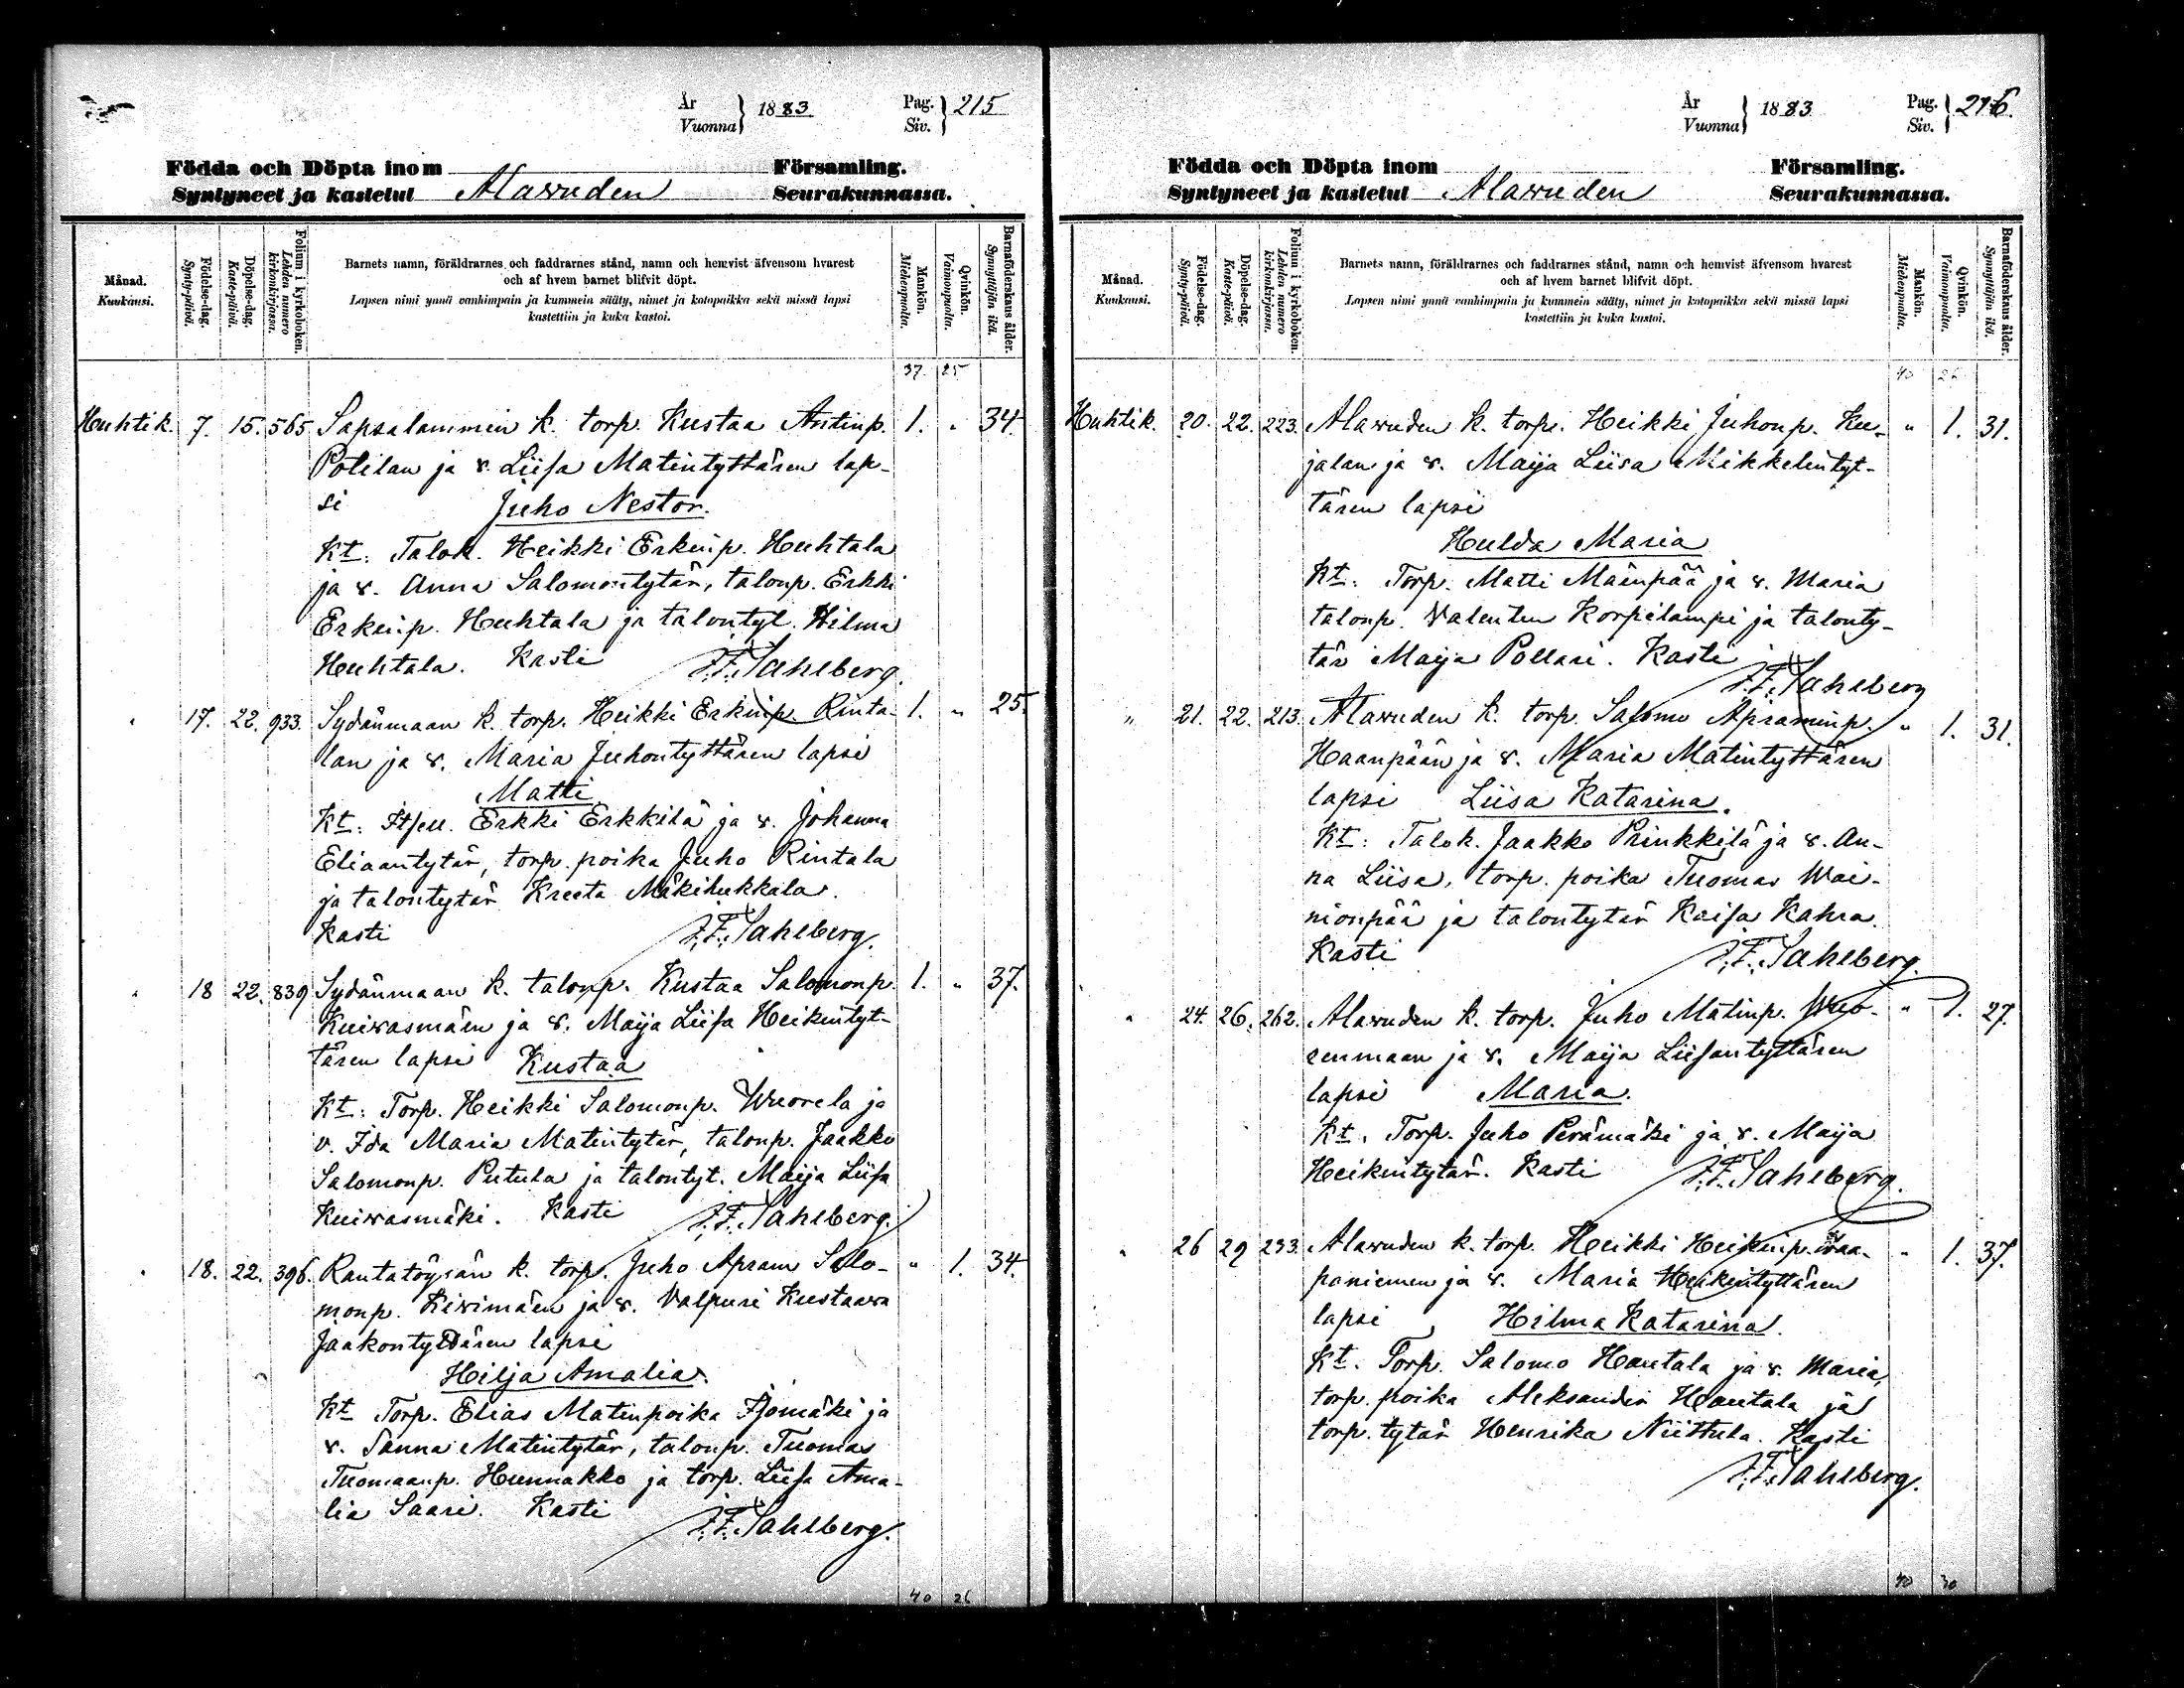 År
Vuonna } 1883
Pag.
Siv. } 215
Födda och Döpta inom Församling.
Syntyneet ja kastetut Alawuden Seurakunnassa.
Månad.
Kuukausi.
Födelse-dag.
Synty-päivä.
Döpelse-dag.
Kaste-päivä.
Folium i kyrkoboken.
Lehden numero
kirkonkirjassa.
Barnets namn, föräldrarnes och faddrarnes stånd, namn och hemvist äfvensom hvarest
och af hvem barnet blifvit döpt.
Lapsen nimi ynnä vanhimpain ja kummein sääty, nimet ja kotopaikka sekä missä lapsi
kastettiin ja kuka kastoi.
Mankön.
Miehenpuolta.
Qvinkön.
Vaimonpuolta.
Barnaföderskans ålder.
Synnyttäjän ikä.
37. 25
Huhtik. 7. 15. 565 Sapsalammin k. torp. Kustaa Antinp. 1. " 34.
Potilan ja v. Liisa Matintyttären lap-
si Juho Nestor.
Kt: Talok. Heikki Erkinp. Huhtala
ja v. Anna Salomontytär, talonp. Erkki
Erkinp. Huhtala ja talontyt. Hilma
Huhtala. Kasti J.F. Sahlberg.
" 17. 22. 933. Sydänmaan k. torp. Heikki Erkinp. Rinta- 1. " 25.
lan ja v. Maria Juhontyttären lapsi
Matti
Kt: Itsell. Erkki Erkkilä ja v. Johanna
Eliaantytär, torp. poika Juho Rintala
ja talontytär Kreeta Mäkihukkala.
Kasti J.F. Sahlberg.
" 18 22. 839 Sydänmaan k. talonp. Kustaa Salomonp. 1. " 37.
Kuiwasmäen ja v. Maija Liisa Heikintyt-
tären lapsi Kustaa
Kt: Torp. Heikki Salomonp. Wuorela ja
v. Ida Maria Matintytär, talonp. Jaakko
Salomonp. Putula ja talontyt. Maija Liisa
Kuiwasmäki. Kasti J.F. Sahlberg.
" 18. 22. 396. Rantatöysän k. torp. Juho Apram Salo- " 1. 34.
monp. Kiwimäen ja v. Valpuri Kustaawa
Jaakontyttären lapsi
Hilja Amalia.
Kt Torp. Elias Matinpoika Isomäki ja
v. Sanna Matintytär, talonp. Tuomas
Tuomaanp. Hunnakko ja torp. Liisa Ama-
lia Saari. Kasti J.F. Sahlberg.
40 26
År
Vuonna } 1883
Pag.
Siv. } 216.
Födda och Döpta inom Församling.
Syntyneet ja kastetut Alawuden Seurakunnassa.
Månad.
Kuukausi.
Födelse-dag.
Synty-päivä.
Döpelse-dag.
Kaste-päivä.
Folium i kyrkoboken.
Lehden numero
kirkonkirjassa.
Barnets namn, föräldrarnes och faddrarnes stånd, namn och hemvist äfvensom hvarest
och af hvem barnet blifvit döpt.
Lapsen nimi ynnä vanhimpain ja kummein sääty, nimet ja kotopaikka sekä missä lapsi
kastettiin ja kuka kastoi.
Mankön.
Miehenpuolta.
Qvinkön.
Vaimonpuolta.
Barnaföderskans ålder.
Synnyttäjän ikä.
40 26
Huhtik. 20. 22. 223. Alawuden k. torp. Heikki Juhonp. Ku- " 1. 31.
jalan ja v. Maija Liisa Mikkelintyt-
tären lapsi
Hulda Maria
Kt: Torp. Matti Mäenpää ja v. Maria
talonp. Valentin Korpilampi ja talonty-
tär Maija Pollari. Kasti J.F. Sahlberg
" 21. 22. 213. Alawuden k. torp. Salomo Apraminp. " 1. 31.
Haanpään ja v. Maria Matintyttären
lapsi Liisa Katarina.
Kt: Talok. Jaakko Prinkkilä ja v. An-
na Liisa, torp. poika Tuomas Wai-
nionpää ja talontytär Kaisa Kahra.
Kasti J.F. Sahlberg.
" 24. 26. 262. Alawuden k. torp. Juho Matinp. Wuo- " 1. 27.
renmaan ja v. Maija Liisantyttären
lapsi Maria.
Kt. Torp. Juho Perämäki ja v. Maija
Heikintytär. Kasti J.F. Sahlberg.
" 26 29 233. Alawuden k. torp. Heikki Heikinp. Waa- " 1. 37.
paniemen ja v. Maria Heikintyttären
lapsi Hilma Katarina.
Kt. Torp. Salomo Hautala ja v. Maria,
torp. poika Aleksander Hautala ja
torp. tytär Henrika Niittula. Kasti
J.F. Sahlberg.
40 30